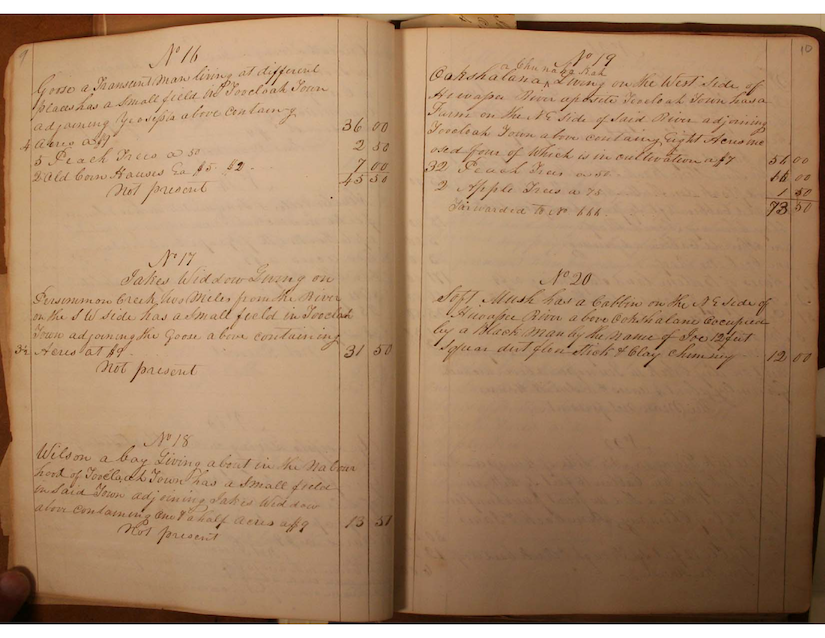 9
No 16
Goose a Transcient Man living at different
places has a Small field in Toveloah Town
adjoining Yeosepia above Containg
4 Acres a $9 36 00
5 Peach Trees a 50 2 50
2 Old Corn Houses Ea $5 $2 - 7 00
Not present 45 50
No 17
Jakes Widdow Living on
Persimmon Creek two Miles from the River
on the S W side has a Small field in Toveloah
Town adjoining the Goose above containing
3½ Acres at $9 - 31 50
Not present
No 18
Wilson a boy Living about in the Nabour
hood of Toveloah Town has a Small field
in Said Town adjoining Jakes Widdow
above containing One & a half Acres a $9 13 50
Not present
10
No 19
a Chu na
Oakshalana Living on the West Side of
River oposite Toveloah Town has a
Farm on the N E Side of Said River adjoining
Toveloah Town above containg Eight Acres
four of Which is in cultivation a $7 56 00
32 Peach Trees a 50 16 00
2 Apple Trees a 75 1 50
Forwarded to No 666 73 50
No 20
Soft Mush has a Cabbin on the N E side of
River above Oakshalana occupied
by a Black Man by the Name of Joe 12 feet
Squar dirt floor Stick & Clay Chimney 12 00